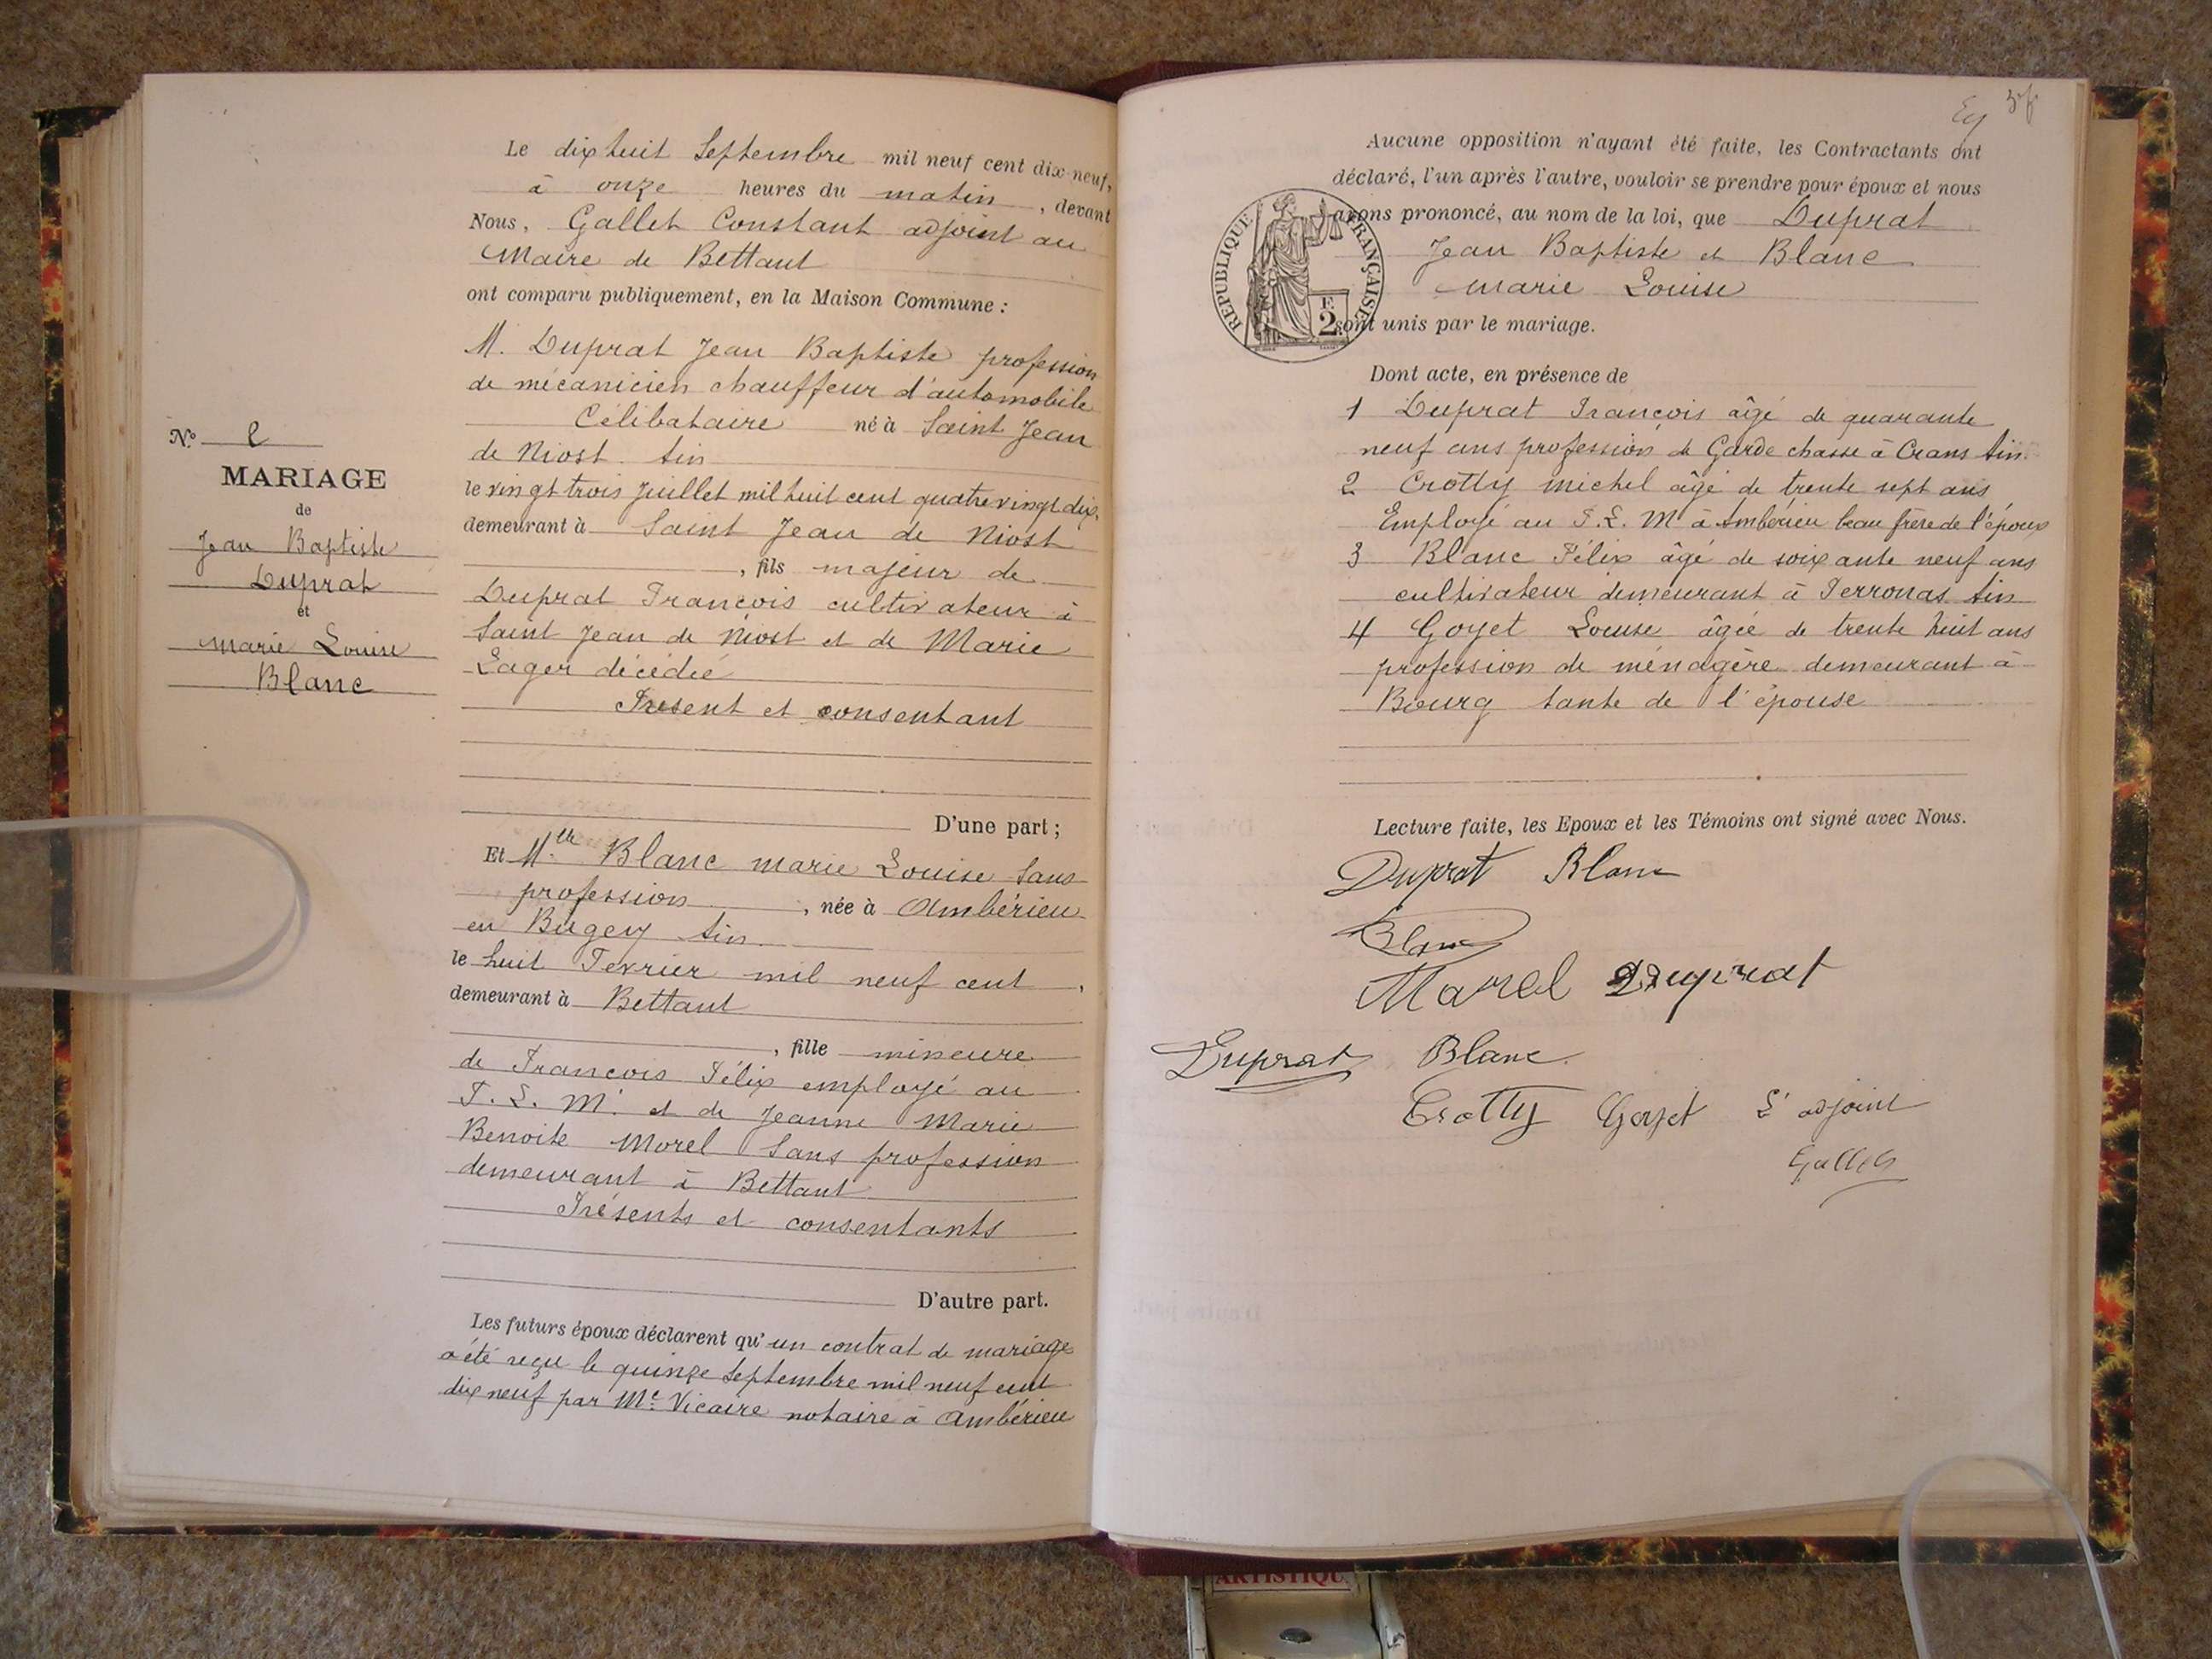 Le dix huit Septembre mil neuf cent dix-neuf,
à onze heures du matin, devant
Nous, Gallet Constant adjoint au
Maire de Bettant
ont comparu publiquement, en la Maison Commune :
M. Duprat Jean Baptiste profession
de mécanicien chauffeur d'automobile
Célibataire né à Saint Jean
de Niost Ain
le vingt trois Juillet mil huit cent quatre vingt dix,
demeurant à Saint Jean de Niost
, fils majeur de
Duprat François cultivateur à
Saint Jean de Niost et de Marie
Lager décédée
Présent et consentant
D'une part ;
Et Mlle Blanc marie Louise Sans
profession, née à Ambérieu
en Bugey Ain
le huit Fevrier mil neuf cent,
demeurant à Bettant
, fille mineure
de François Félix employé au
P. L. M. et de Jeanne Marie
Benoite Morel Sans profession
demeurant à Bettant
Présents et consentants
D'autre part.
Les futurs époux déclarent qu'un contrat de mariage
a été reçu le quinze Septembre mil neuf cent
dix neuf par Me Vicaire notaire à Ambérieu
N.º 2
MARIAGE
de
Jean Baptiste
Duprat
et
Marie Louise
Blanc
Aucune opposition n'ayant été faite, les Contractants ont
déclaré, l'un après l'autre, vouloir se prendre pour époux et nous
avons prononcé, au nom de la loi, que Duprat
Jean Baptiste et Blanc
Marie Louise
sont unis par le mariage.
REPUBLIQUE FRANÇAISE
F.
2
Dont acte, en présence de
1 Duprat François âgé de quarante
neuf ans profession de Garde chasse à Crans Ain
2 Crotty Michel âgé de trente sept ans
Employé au P. L. M. à Ambérieu beau frère de l'époux
3 Blanc Félix âgé de soixante neuf ans
cultivateur demeurant à Perronas Ain
4 Goyet Louise âgée de trente huit ans
profession de ménagère demeurant à
Bourg tante de l'épouse
Lecture faite, les Epoux et les Témoins ont signé avec Nous.
Duprat Blanc
Blanc
Morel Duprat
Duprat Blanc
Crotty Goyet L'adjoint
Gallet
ARTISTIQU